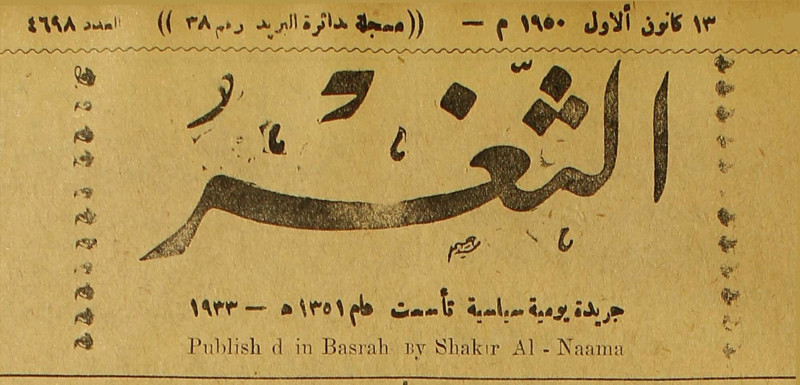 ١٣ كانون ألاول ١٩٥٠ م — ((مسجلة بدائرة البريد رقم ٣٨)) العدد ٤٦٩٨
الثَّغْرُ
جريدة يومية سياسية تأسست عام ١٣٥١ ه — ١٩٣٣
Publish d in Basrah By Shakir Al - Naama